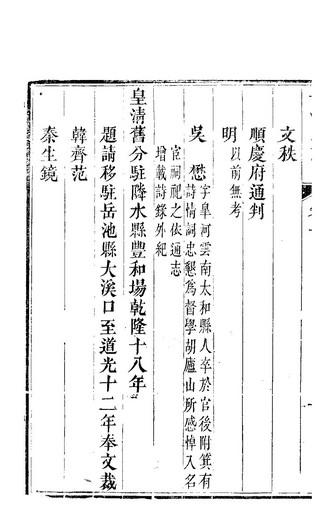 文秩
順慶府通判
明以前無考
吳懋字皐河雲南太和縣人卒於官後附箕有
詩情詞忠懇爲督學胡廬山所感悼入名
宦祠祀之依通志
增載詩錄外紀
皇清舊分駐隣水縣豐和場乾隆十八年
題請移駐岳池縣大溪口至道光十二年奉文裁
韓齊范
秦生鏡